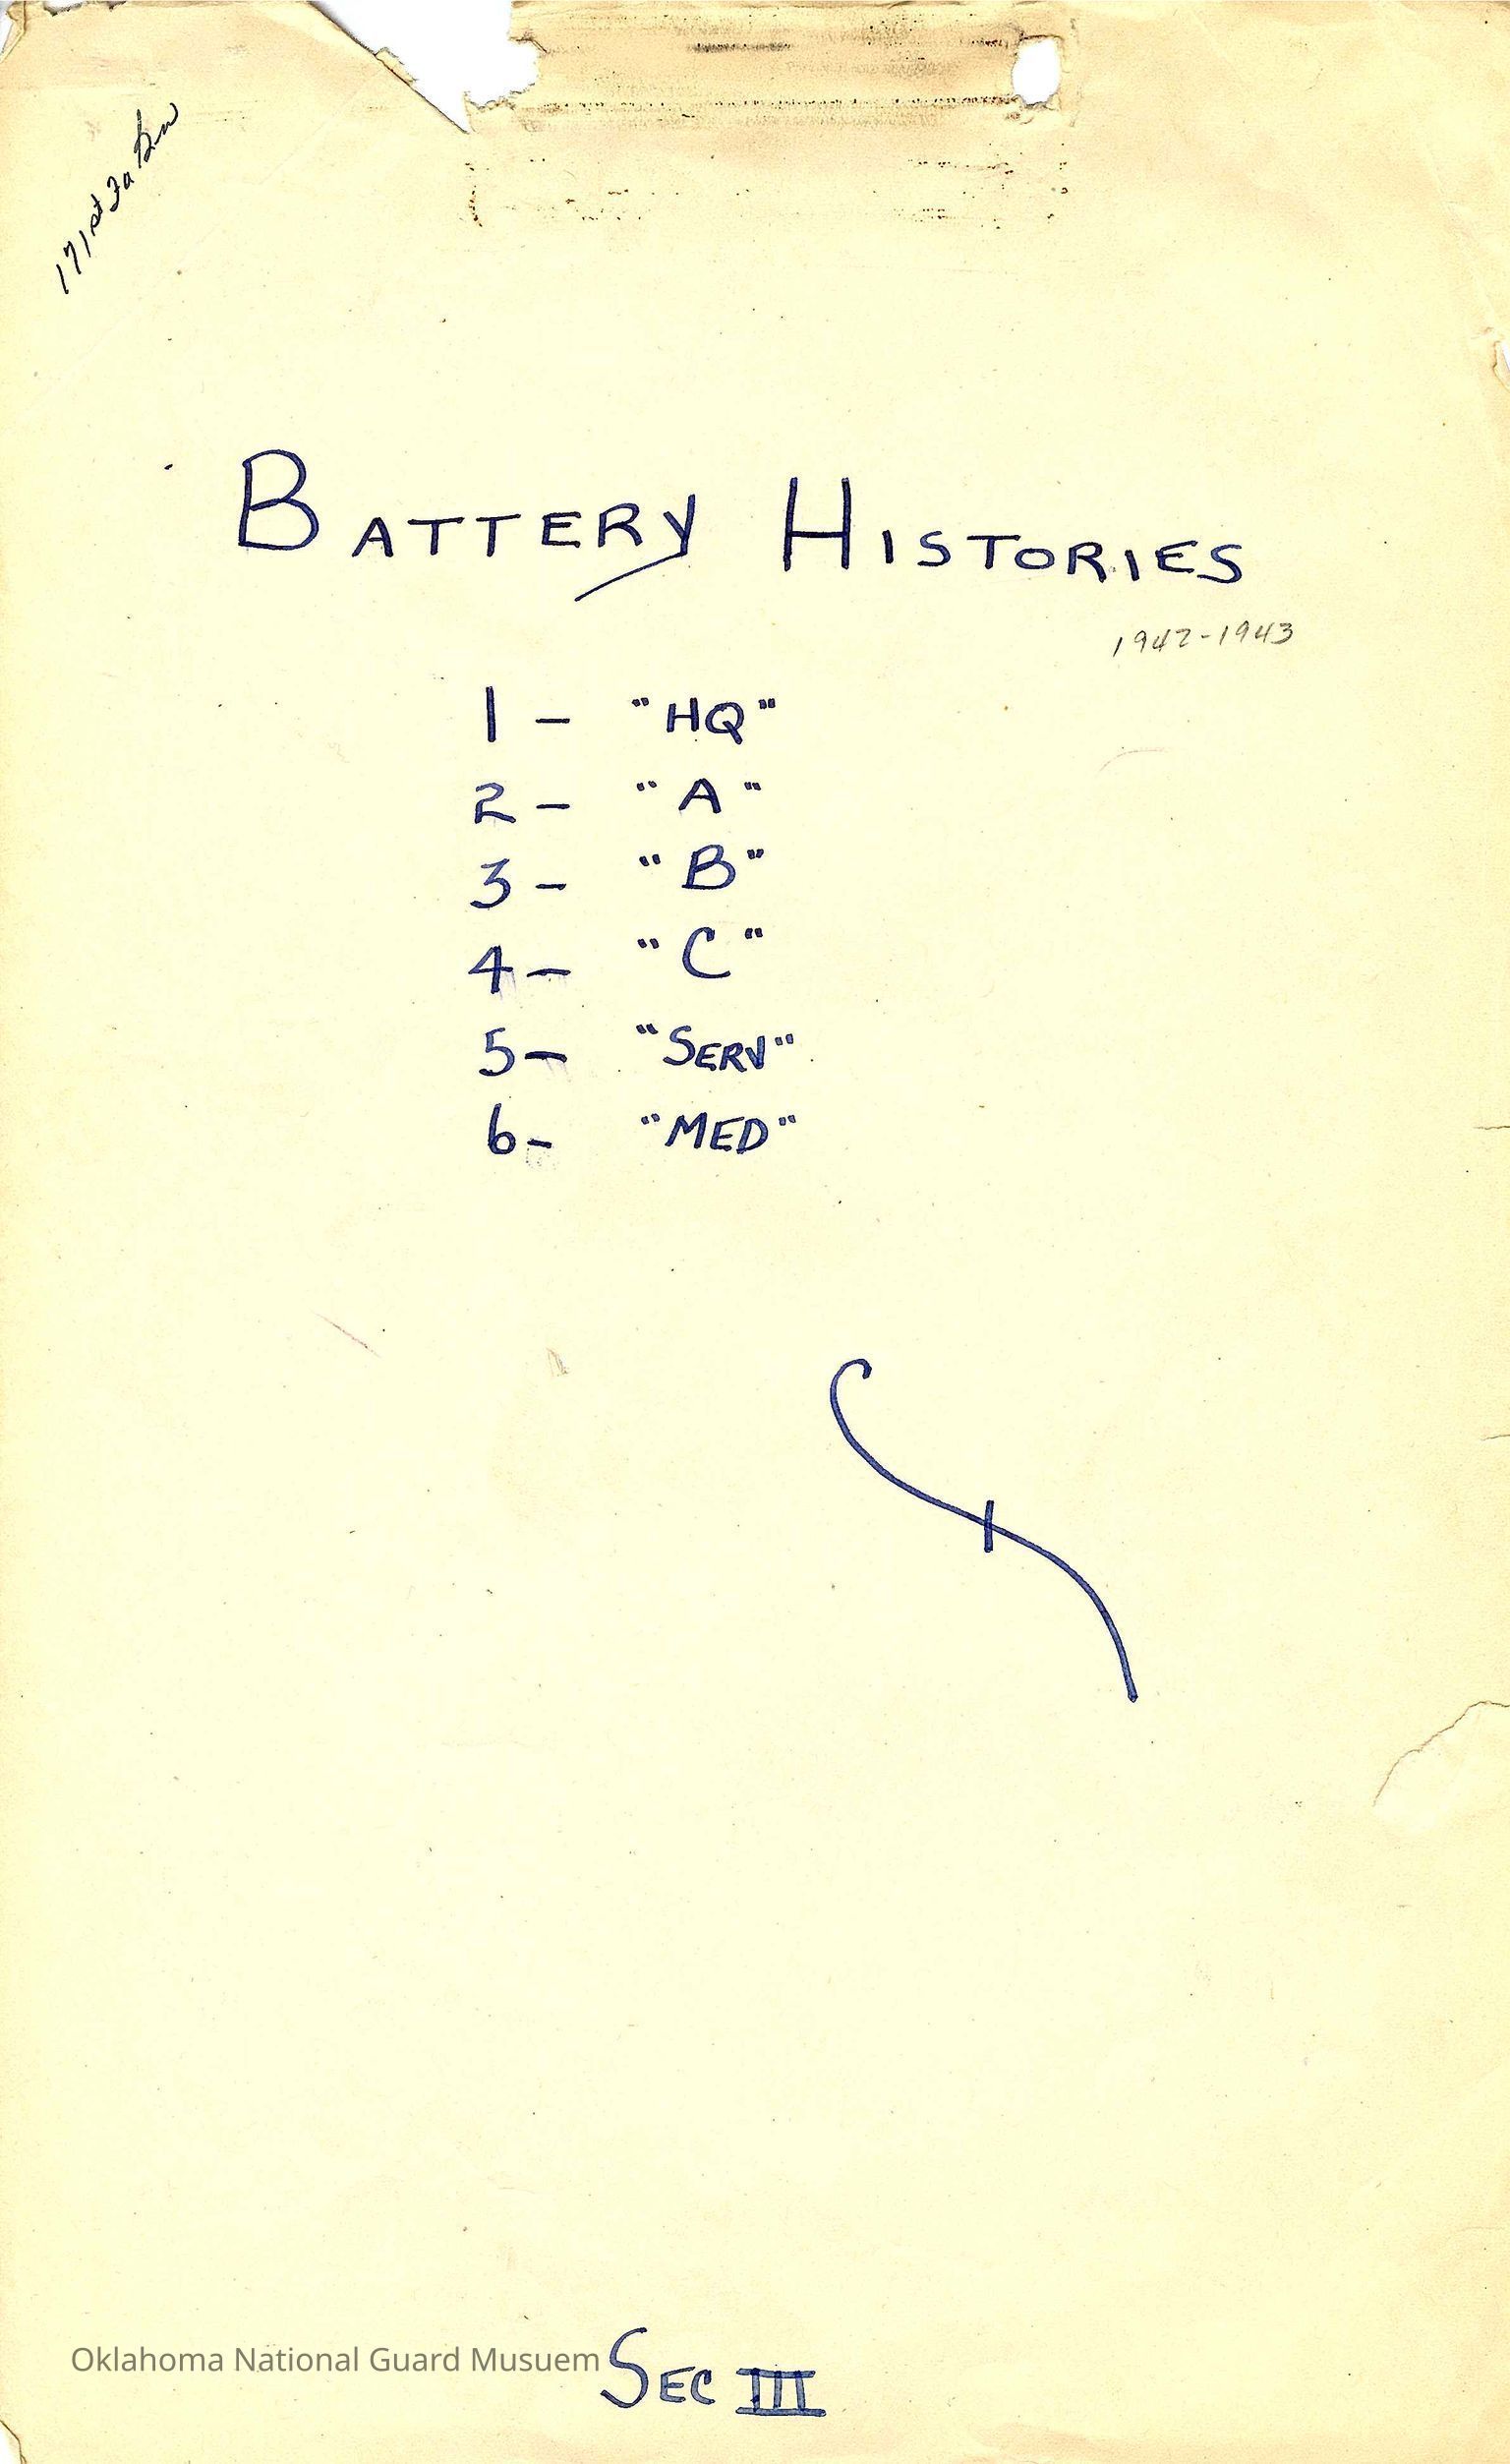 171st Fa Bn
BATTERY HISTORIES
1942-1943
1 - "HQ"
2 - "A"
3 - "B"
4 - "C"
5 - "SERV"
6 - "MED"
Oklahoma National Guard Musuem
SEC III